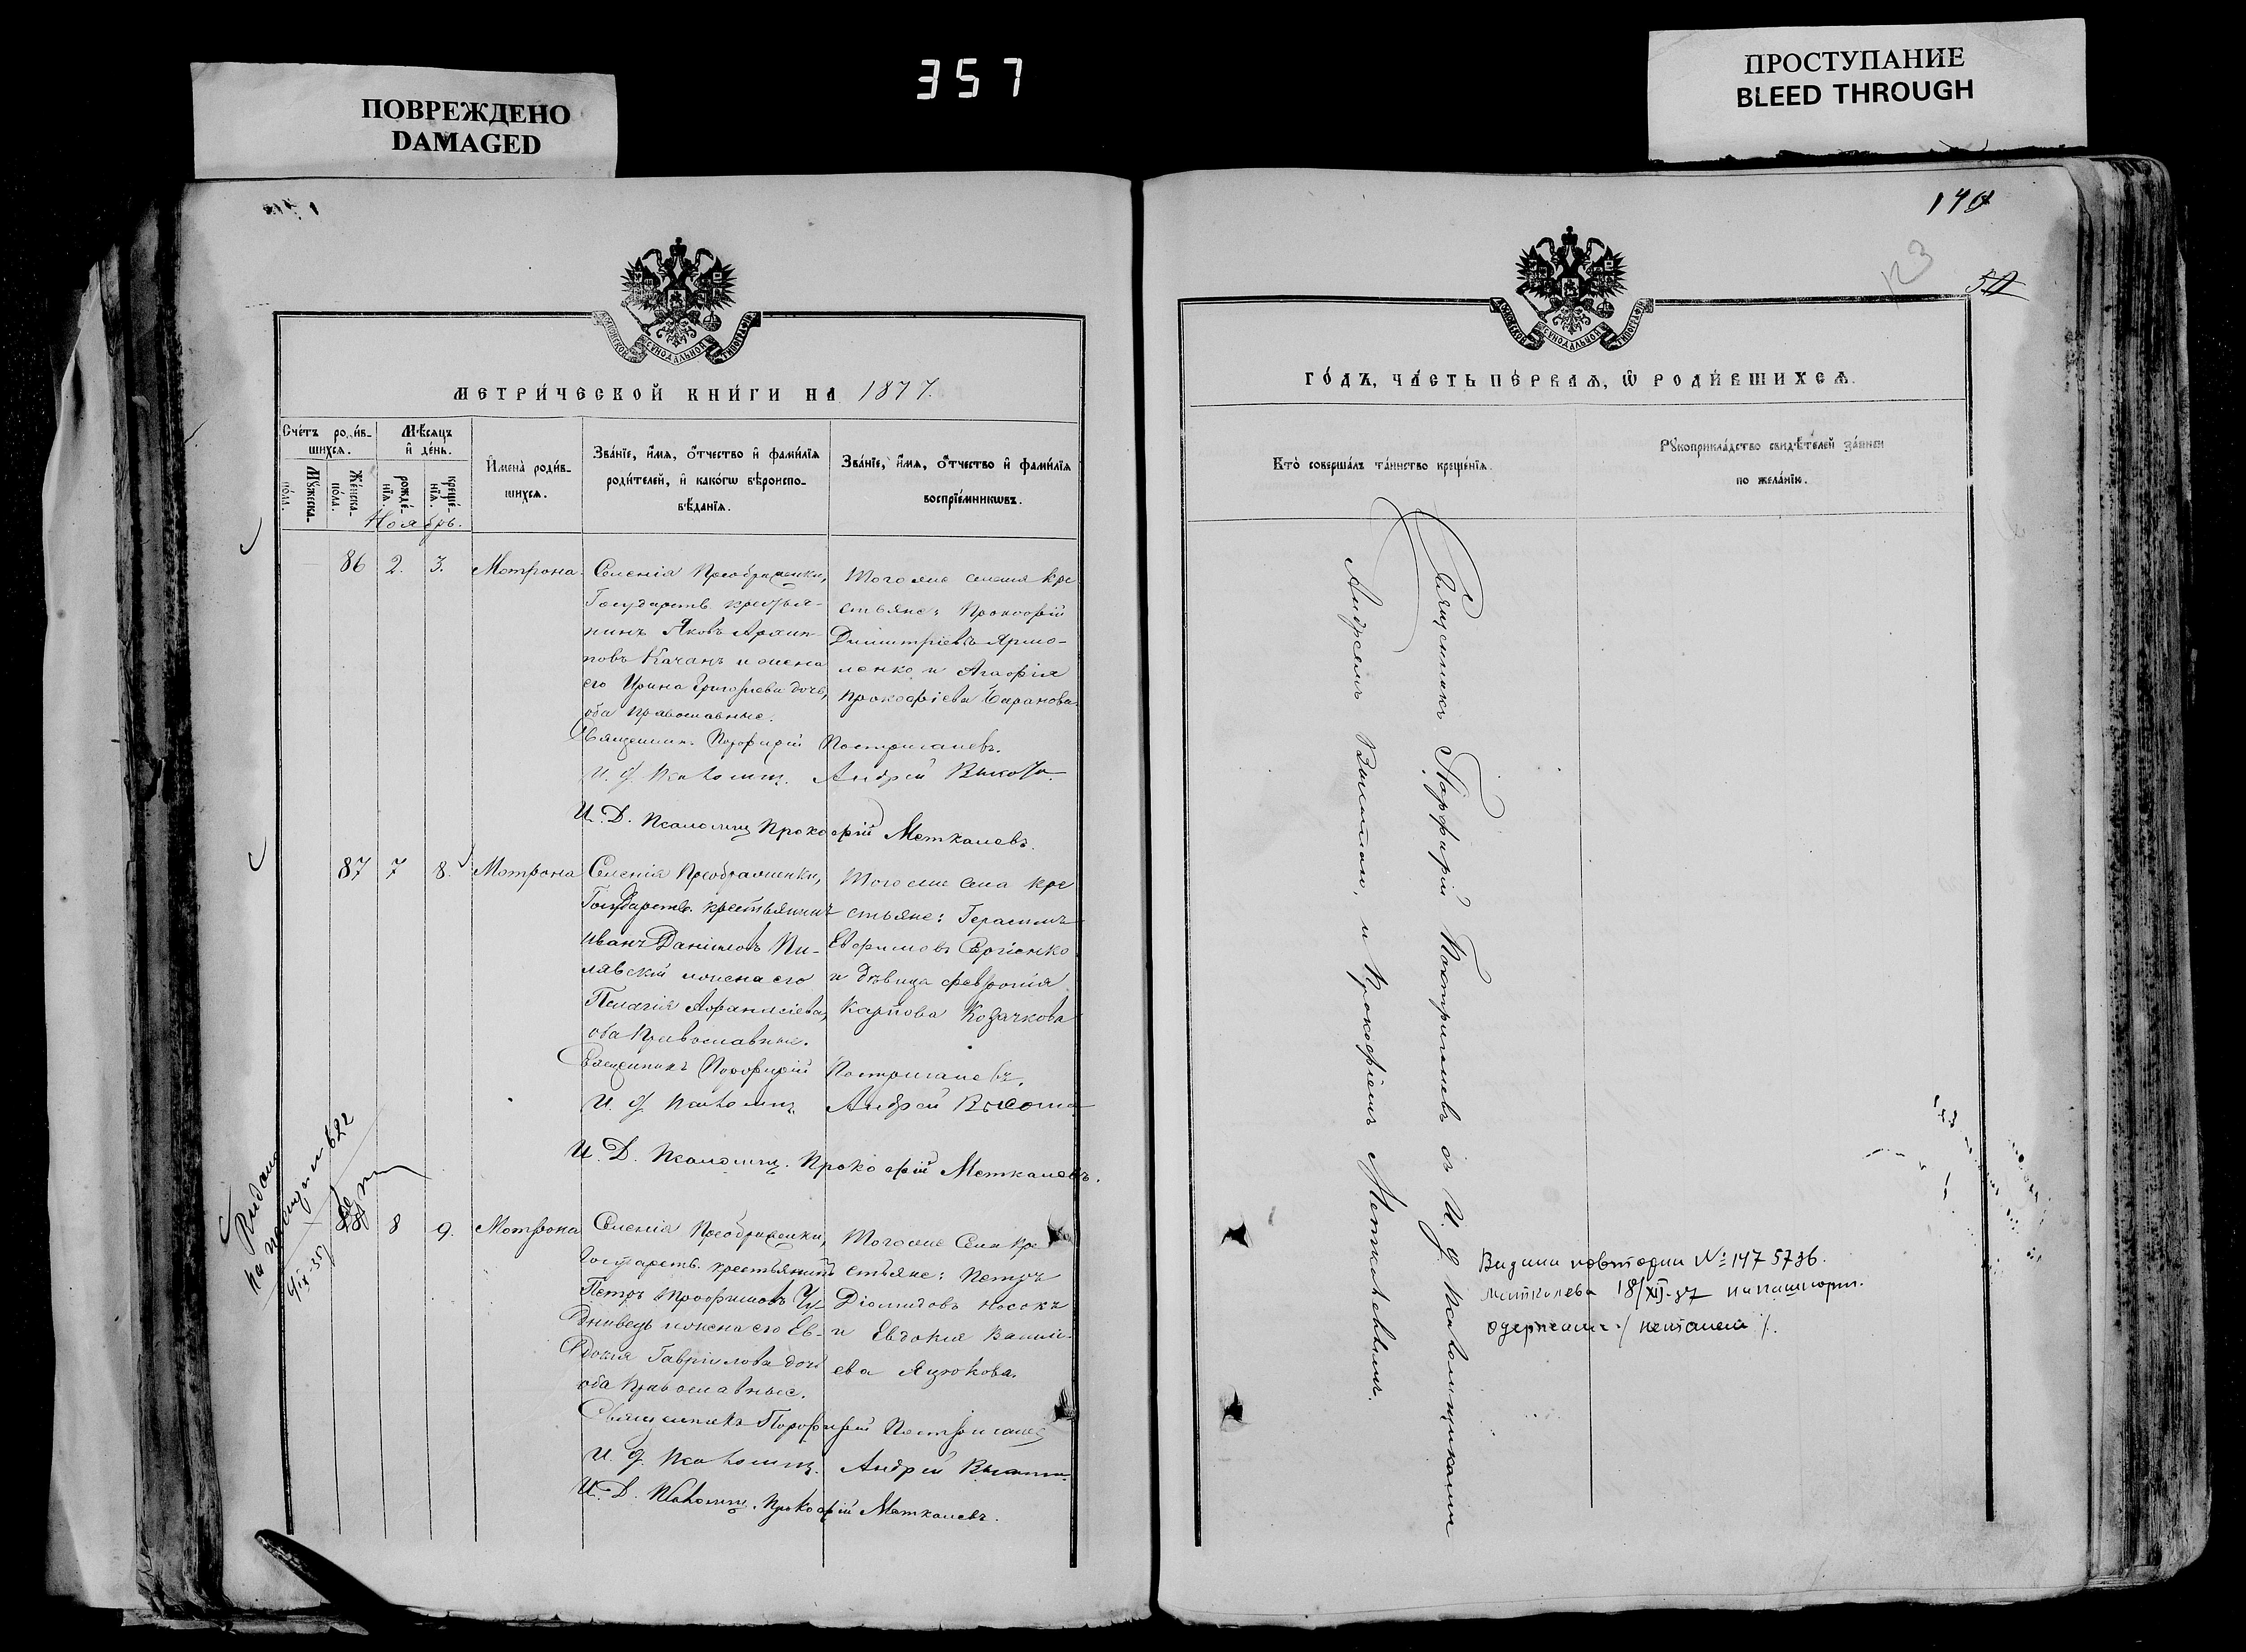 357
ПОВРЕЖДЕНО
DAMAGED
ПРОСТУПАНИЕ
BLEED THROUGH
МЕТРИ́ЧЕСКОЙ КНИ́ГИ НА 1877.
Сче́тъ роди́в-
шихсѧ.
Мꙋ́жеска-
по́ла.
Же́нска-
по́ла.
Мѣ́сѧцъ
и҆ де́нь.
рожде́-
нїѧ.
креще́-
нїѧ.
Ноябрь.
И҆мена̀ роди́в-
шихсѧ.
Зва́нїе, и҆́мѧ, ѻ҆́тчество и҆ фами́лїѧ
роди́телей, и҆ како́гѡ вѣроиспо-
вѣ́данїѧ.
Зва́нїе, и҆́мѧ, ѻ҆́тчество и҆ фами́лїѧ
воспрїе́мникѡвъ.
86 2. 3. Мотрона.
Селенія Преображенки,
Государств. крестья-
нинъ Яковъ Архип-
повъ Качанъ и жена
его Ирина Григорiева дочь,
оба православные.
Тогоже селенія кре
стьяне: Прокофій
Димитріевъ Ярмо-
ленко и Агафія
Прокофіева Баранова.
Священникъ Порфирій Постригачевъ.
И. д. Псаломщ. Андрей Высота
И. Д. Псаломщ Прокофій Меткалевъ.
87 7 8. Мотрона
Селенія Преображенки,
Государств. крестьянинъ
Иванъ Даніиловъ Пи-
лявскій и жена его
Пелагія Афанасіева,
оба православные.
Тогоже села кре
стьяне: Герасимъ
Ефимовъ Сергіенко
и дѣвица Февронія
Карпова Козачкова
Священникъ Порфирій Постригачевъ.
И. д. Псаломщ. Андрей Высота
И. Д. Псаломщ. Прокофій Меткалевъ.
Видано
на
622
88 8 9. Мотрона
Селенія Преображенки,
Государств. крестьянинъ
Петръ Трофимовъ Чу-
днивецъ и жена его Ев-
докія Гавріилова дочь
оба православные.
Тогоже села кре
стьяне: Петръ
Діомидовъ Носокъ
и Евдокія Васи-
ева Яцюкова.
Священникъ Порфирій Постригачев
И. д. Псаломщ. Андрей Высота
И. Д. Псаломщ. Прокофій Меткалевъ.
ГО́ДЪ, ЧА́СТЬ ПЕ́РВАѦ, Ѡ҆ РОДИ́ВШИХСѦ.
Кто̀ соверша́лъ та́инство креще́нїѧ.
Рꙋкоприкла́дство свидѣ́телей за́писи
по жела́нїю.
Священникъ Порфирій Постригачевъ съ И. д. Псаломщиками
Андреемъ Высотою, и Прокофіемъ Меткалевымъ.
Видана повторни № 1475736.
18/XII-37 на пашпорт.